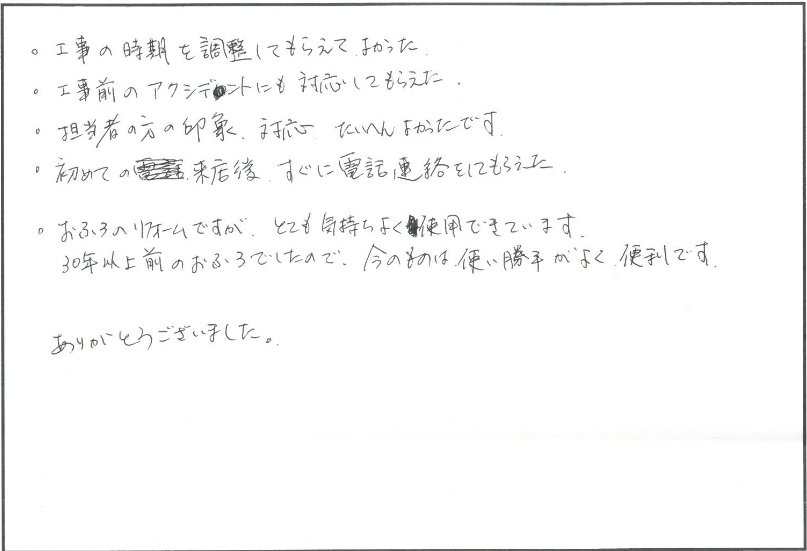 。工事の時期を調整してもらえて、よかった。
。工事前のアクシデントにも対応してもらえた。
。担当者の方の印象、対応、たいへんよかったです。
。初めての来店後、すぐに電話連絡をしてもらえた。
。おふろのリフォームですが、とても気持ちよく使用できています。
30年以上前のおふろでしたので、今のものは、使い勝手がよく、便利です。
ありがとうございました。